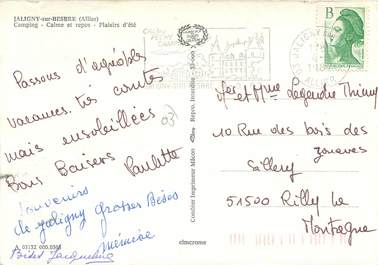 JALIGNY-sur-BESBRE (Allier)
Camping - Calme et repos - Plaisirs d'été
Passons d'agréables
vacances, très courtes
mais ensoleillées
Bons Baisers Paulette
Souvenirs
de jaligny Grosses Bises
Mémée
Bises Jacqueline
A 03132 000.0368
Combier Imprimeur Mâcon
elmcrome
B
Mr et Mme Legendre Thierry
10 Rue des bois des
zouaves
Sillery
51500 Rilly la
Montagne